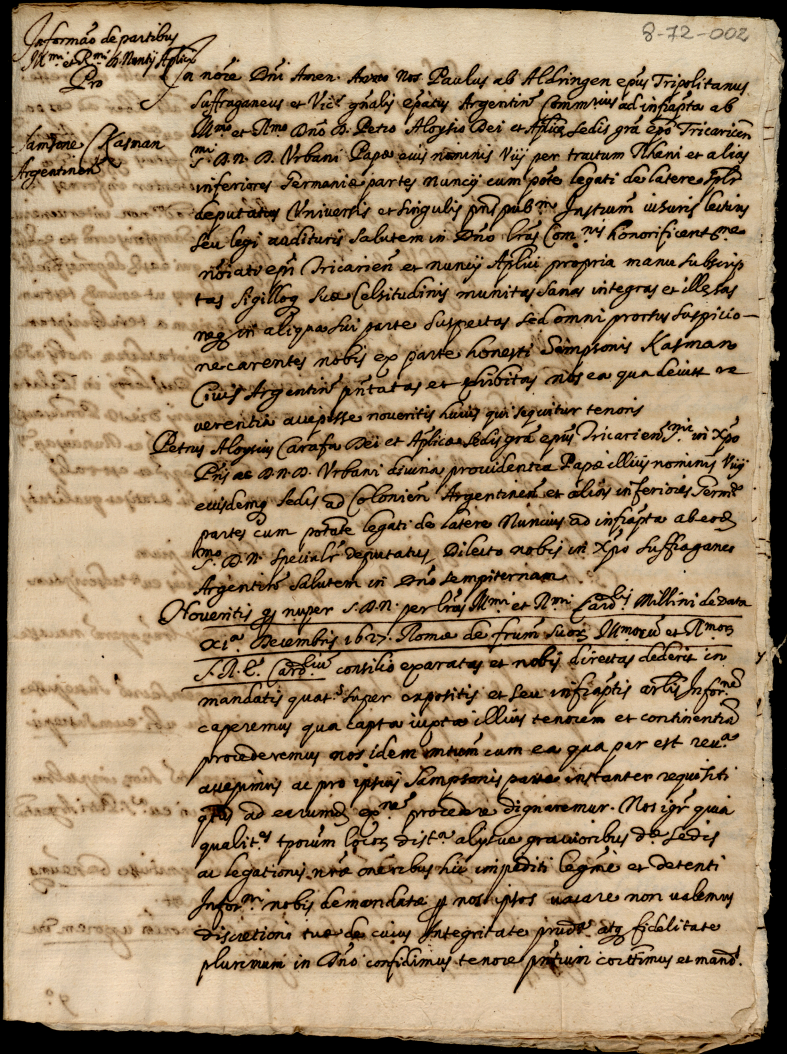 8-72-002
Informaõ de partibus
Illmi et Rmi D. Nuntij Aplici
Pro
Samsone Kasman
Argentinen
In noïe Dñi Amen. Nos Paulus ab Aldringen epüs Tripolitanus
Suffraganeus et Vics gñalis epatus Argentinẽ Commrius ad infrapta ab
Illmo et Rmo Dno D. Petro Aloysio Dei et Aplicæ Sedis grã epõ Tricaricen
Smi D. N. D. Vrbani Papæ eius nominis Viij per tractum Rheni et alias
inferiores Germaniæ partes Nuncij cum põte legati de latere splr
deputatus Vniuersis et singulis pñs pubm Instrum uisuris lecturis
seu legi audituris salutem in Dño lrãs Comnis honorificentme
noïati epi Tricarieñ et nuncij Aplici propria manu subscrip
tas sigilloq suæ Celsitudinis munitas sanas integras et illesas
neq in aliqua sui parte suspectas sed omni prorsus suspicio-
ne carentes nobis ex parte honesti Simpsonis Kasman
Ciuis Argentinẽ pñtatas et exhibitas nos ea qua decuit re
uerentia accepisse noueritis huius qui sequitur tenoris
Petrus Aloysius Carafa Dei et Aplicæ Sedis grã epüs Tricarien Smi in Xpõ
Pris ac D. N. D. Vrbani diuina prouidentia Papæ illius nominis Viij
eiusdemq sedis ad Colonien Argentinen et alios inferiores Germæ
partes cum potate legati de latere Nuncius ad infrapta ab eod
Smo D. N. specialr deputatus, Dilecto nobis in Xpõ Suffraganeo
Argentinẽ salutem in Dño sempiternam
Noueritis qđ nuper S. D. N. per lrãs Illmi et Rmi Cardlis Millini de Data
xia Decembris 1627. Romæ de frum suor Illmorum et Rmor
S. R. E. Cardlium consilio exaratas et nobis directas dederit in
mandatis quats super expositis et seu infraptis artlis Informe
caperemus qua capta iuxta illius tenorem et continentia
procederemus nos idem mtum cum ea qua par est reua
accepimus ac pro ipsius Samptonis parte instanter requisiti
qts ad earumd exnẽ procedere dignaremur. Nos igr quia
qualits tporum locor dista alysue grauioribus dæ Sedis
ac legationis nræ oneribus hic impediti legme et detenti
Informni nobis demandatæ p nos ipsos uacare non ualemus
discretioni tuæ de cuius Integritate prude atq fidelitate
plurimum in Dño confidimus tenore pñtium comttimus et mand.